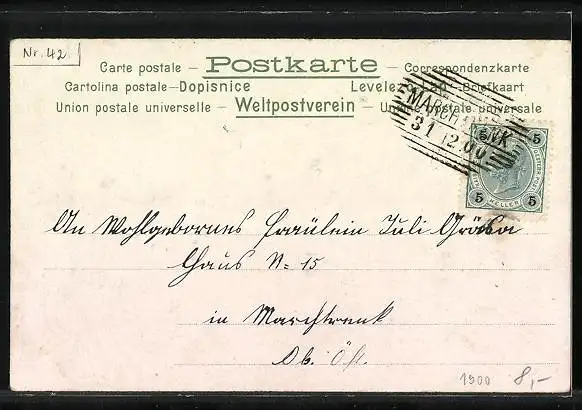 Nr. 42.
Carte postale — Postkarte — Correspondenzkarte
Cartolina postale — Dopisnice Levelező-Lap — Briefkaart
Union postale universelle — Weltpostverein — Union postale universale
MARCHTRENK
31 12.00
5 5
5 HELLER 5
An Wohlgebornes Fräulein Juli
Haus N= 15
in Marchtrenk
Ob. Öst.
1900 8,-